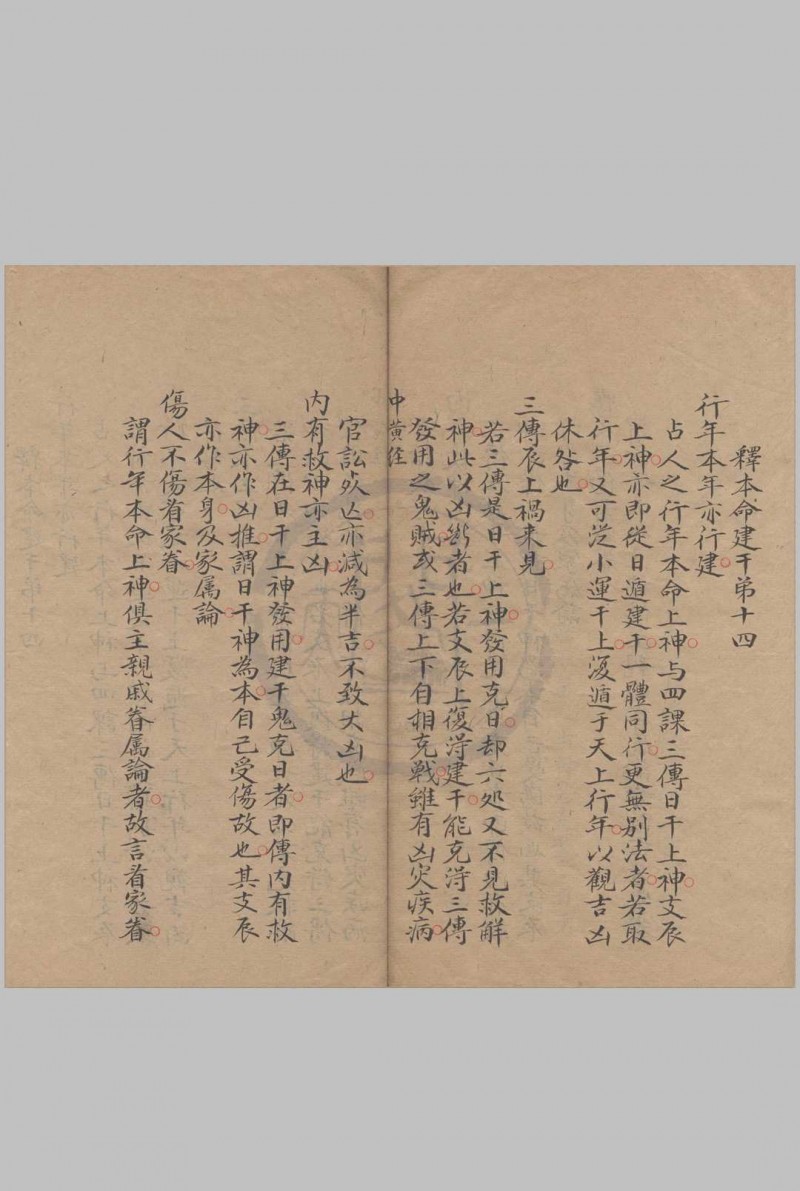 釋本命建干弟十四
行年本年亦行建
占人之行年本命上神与四課三傳日干上神支辰
上神亦即從日遁建干一體同行更無別法者若取
行年又可從小運干上復遁于天上行年以觀吉凶
休咎也
三傳辰上禍来見
若三傳是日干上神發用克日却六処又不見救觧
神此以凶断者也若支辰上復淂建干能克淂三傳
發用之鬼賊或三傳上下自相克戰雖有凶灾疾病
中黄经
官訟死亾亦減為半吉不致大凶也
内有救神亦主凶
三傳在日干上神發用建干鬼克日者即傳内有救
神亦作凶推謂日干神為本自己受傷故也其支辰
亦作本身及家属論
傷人不傷看家眷
謂行年本命上神俱主親戚眷属論者故言看家眷